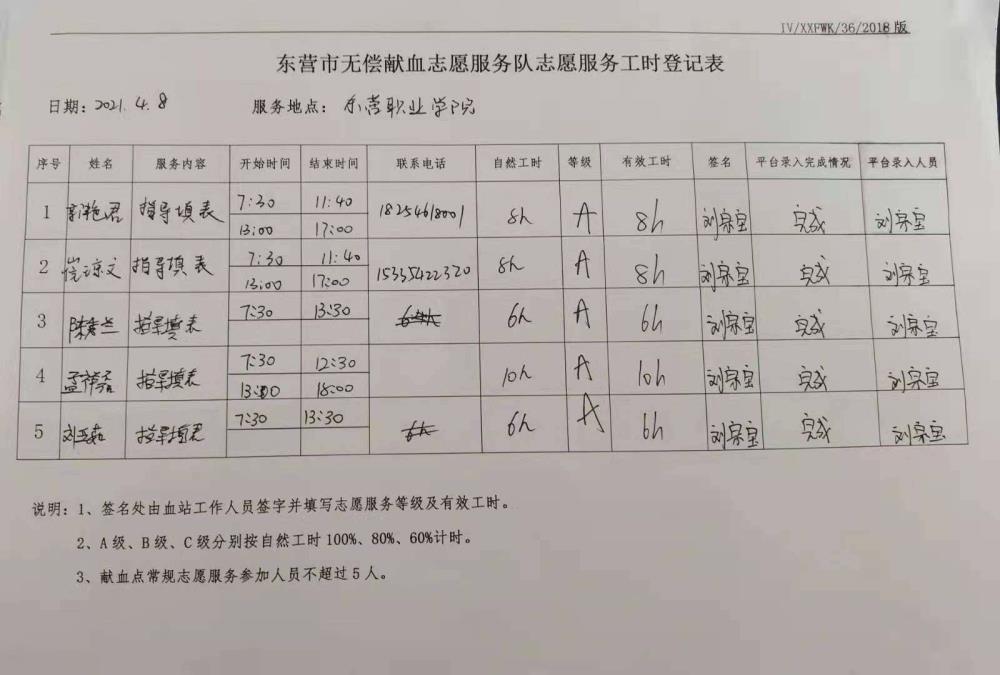 IV/XXFWK/36/2018版
东营市无偿献血志愿服务队志愿服务工时登记表
日期：2021.4.8 服务地点：东营职业学院
序号 姓名 服务内容 开始时间 结束时间 联系电话 自然工时 等级 有效工时 签名 平台录入完成情况 平台录入人员
1 指导填表 7:30 11:40 18254618001 8h A 8h 刘宗宝 完成 刘宗宝
13:00 17:00
2 指导填表 7:30 11:40 15335422320 8h A 8h 刘宗宝 完成 刘宗宝
13:00 17:00
3 指导填表 7:30 13:30 6h A 6h 刘宗宝 完成 刘宗宝
4 指导填表 7:30 12:30 10h A 10h 刘宗宝 完成 刘宗宝
13:00 18:00
5 指导填表 7:30 13:30 6h A 6h 刘宗宝 完成 刘宗宝
说明：1、签名处由血站工作人员签字并填写志愿服务等级及有效工时。
2、A级、B级、C级分别按自然工时100%、80%、60%计时。
3、献血点常规志愿服务参加人员不超过5人。